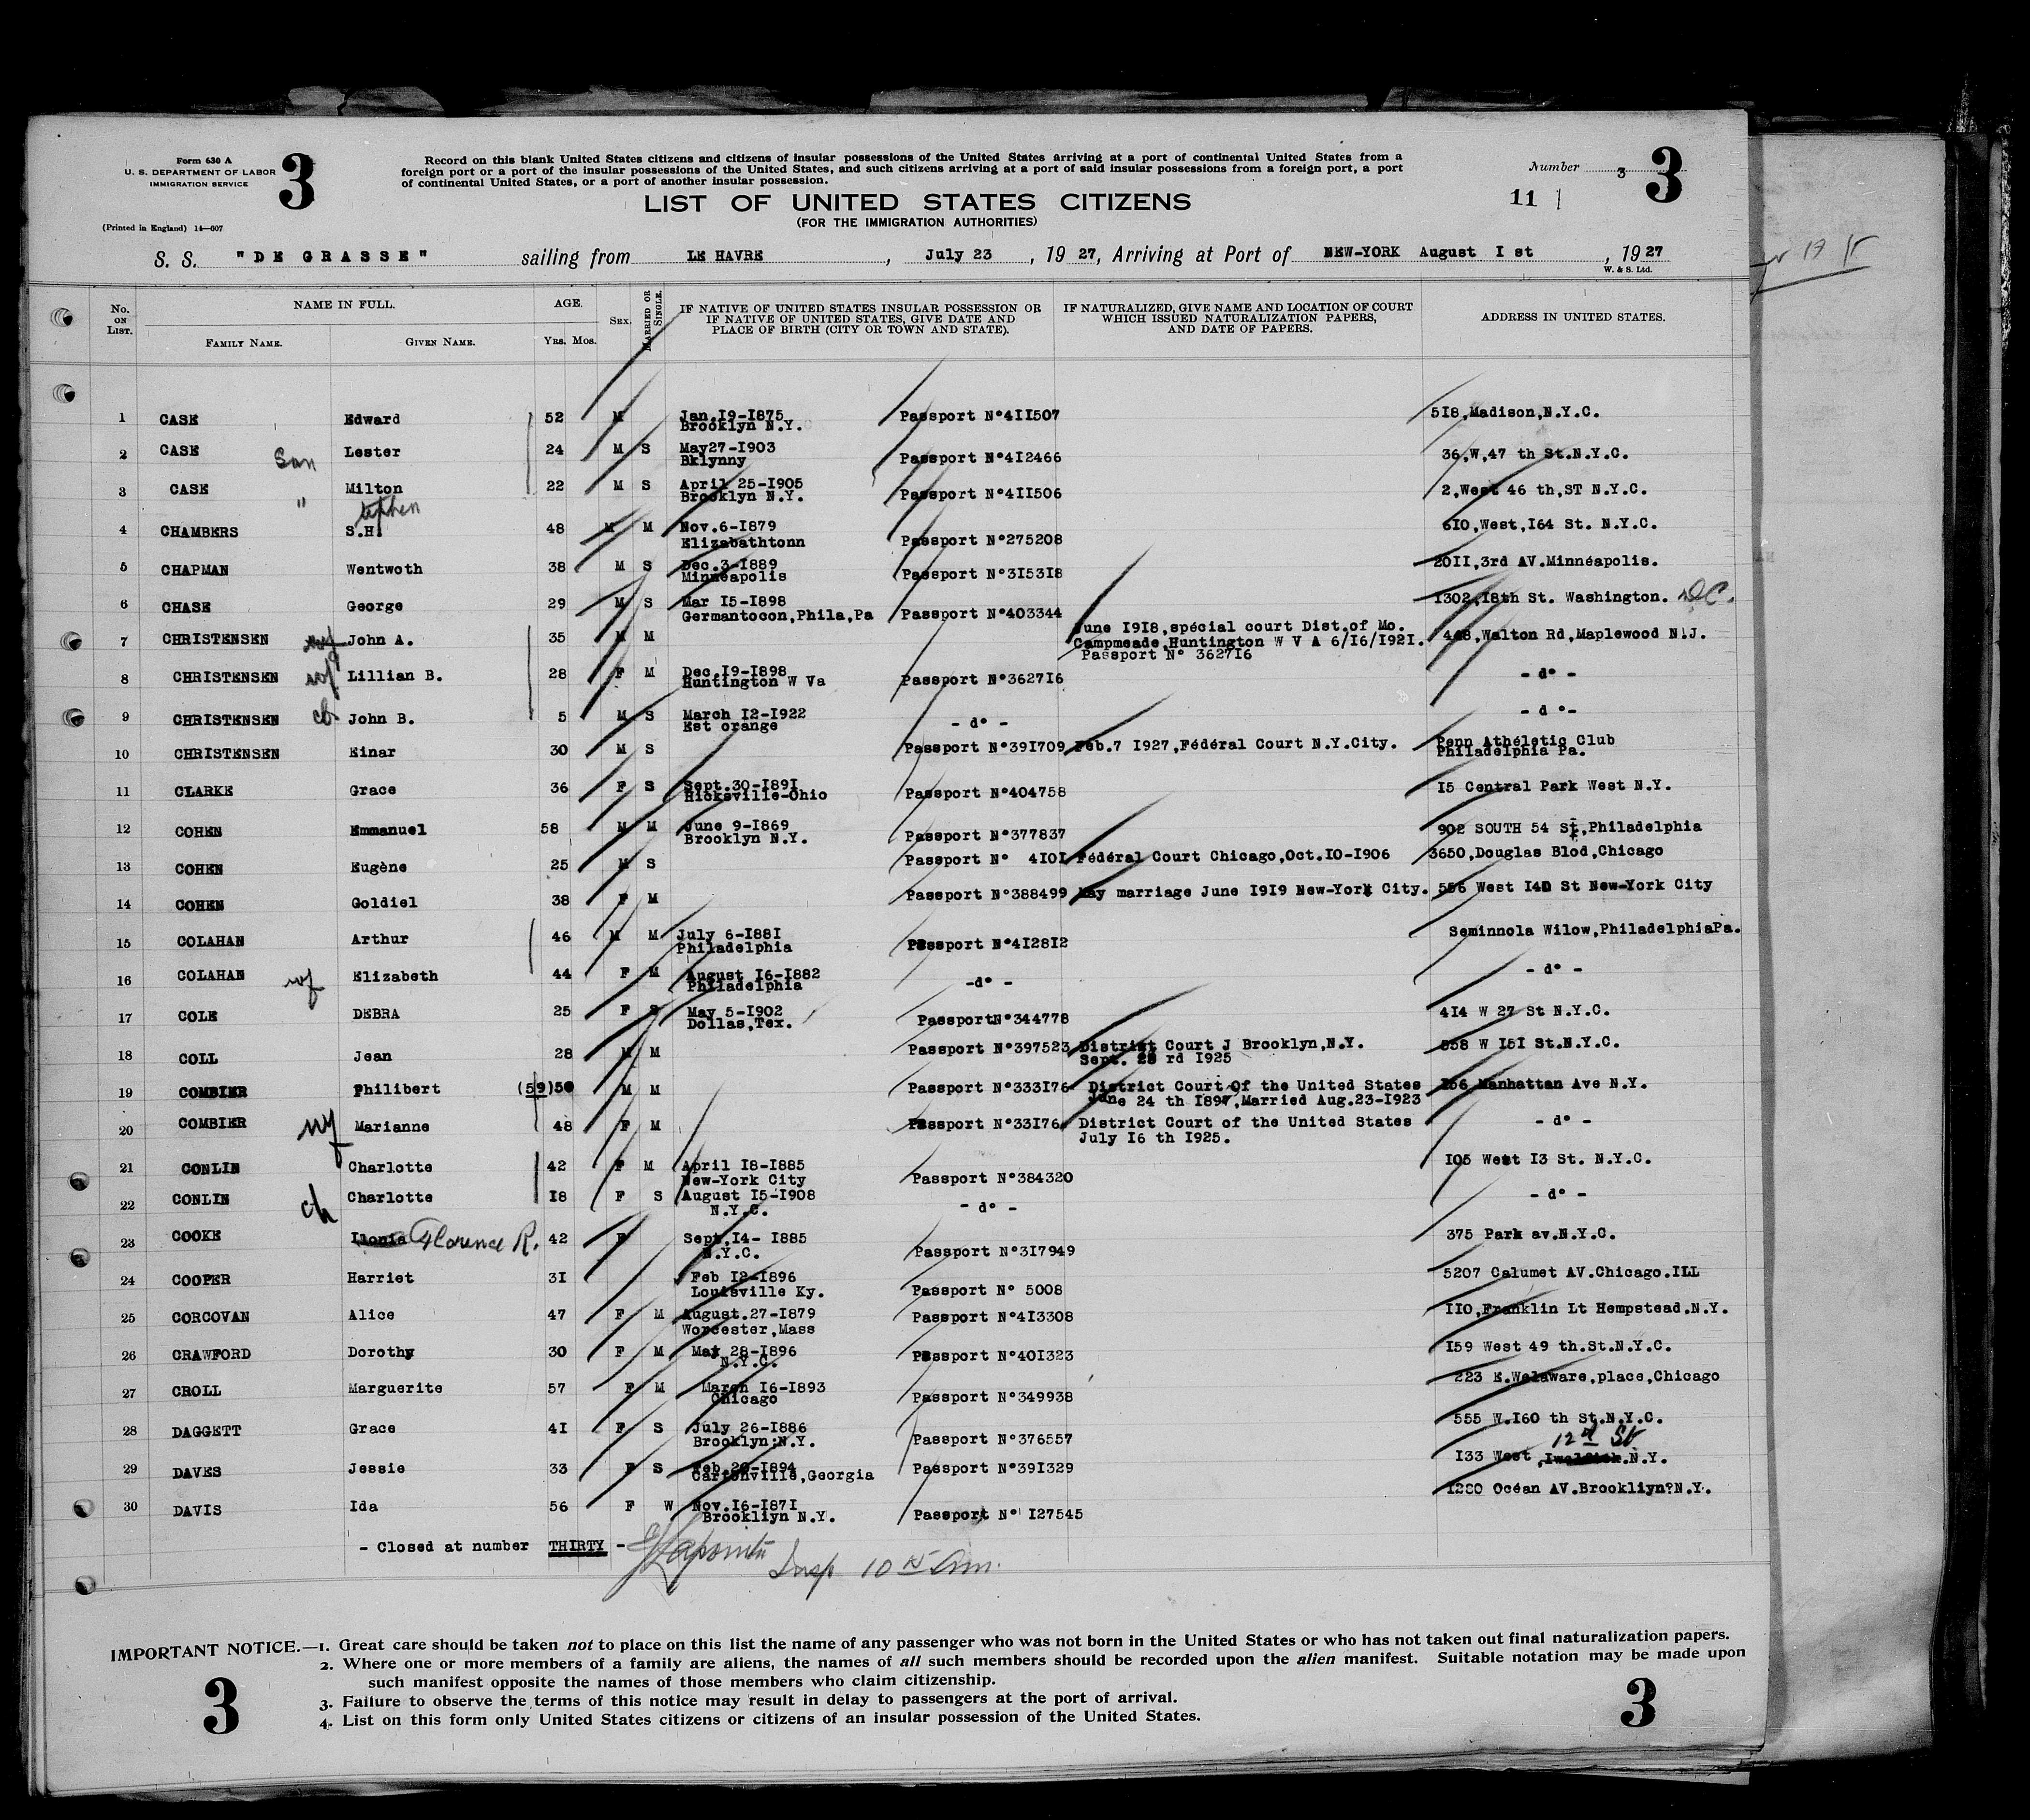 Form 630 A
U. S. DEPARTMENT OF LABOR
IMMIGRATION SERVICE
3
Record on this blank United States citizens and citizens of insular possessions of the United States arriving at a port of continental United States from a
foreign port or a port of the insular possessions of the United States, and such citizens arriving at a port of said insular possessions from a foreign port, a port
of continental United States, or a port of another insular possession.
Number 3
3
11
LIST OF UNITED STATES CITIZENS
(FOR THE IMMIGRATION AUTHORITIES)
(Printed in England) 14—607
S. S. "DE GRASSE" sailing from LE HAVRE, July 23, 1927, Arriving at Port of NEW-YORK August I st, 1927
W. & S. Ltd.
No. ON LIST. NAME IN FULL. FAMILY NAME. GIVEN NAME. AGE. YRS. MOS. SEX. MARRIED OR SINGLE. IF NATIVE OF UNITED STATES INSULAR POSSESSION OR IF NATIVE OF UNITED STATES, GIVE DATE AND PLACE OF BIRTH (CITY OR TOWN AND STATE). IF NATURALIZED, GIVE NAME AND LOCATION OF COURT WHICH ISSUED NATURALIZATION PAPERS, AND DATE OF PAPERS. ADDRESS IN UNITED STATES.
1 CASE Edward 52 M Jan.I9-I875 Brooklyn N.Y. Passport N°4II507 5I8,Madison,N.Y.C.
2 CASE Son Lester 24 M S May27-I903 Bklynny Passport N°4I2466 36,W,47 th St.N.Y.C.
3 CASE " Milton 22 M S April 25-I905 Brooklyn N.Y. Passport N°4II506 2,West 46 th,ST N.Y.C.
4 CHAMBERS S.H. tephen 48 M M Nov.6-I879 Elizabathtonn Passport N°275208 6I0,West,I64 St. N.Y.C.
5 CHAPMAN Wentwoth 38 M S Dec.3-I889 Minneapolis Passport N°3I53I8 20II,3rd AV.Minnéapolis.
6 CHASE George 29 M S Mar I5-I898 Germantocon,Phila,Pa Passport N°403344 I302,I8th St. Washington. D.C.
7 CHRISTENSEN John A. 35 M M June I9I8,spécial court Dist.of Mo. Campmeade,Huntington W V A 6/I6/I92I. Passport N° 3627I6 448,Walton Rd,Maplewood N.J.
8 CHRISTENSEN wf Lillian B. 28 F M Dec.I9-I898 Huntington W Va Passport N°3627I6 - d° -
9 CHRISTENSEN ch John B. 5 M S March I2-I922 Est orange - d° - - d °-
10 CHRISTENSEN Einar 30 M S Passport N°39I709 Feb.7 I927,Fédéral Court N.Y.City. Penn Athélétic Club Philadelphia Pa.
11 CLARKE Grace 36 F S Sept.30-I89I Hicksville-Ohio Passport N°404758 I5 Central Park West N.Y.
12 COHEN Emmanuel 58 M M June 9-I869 Brooklyn N.Y. Passport N°377837 902 SOUTH 54 St,Philadelphia
13 COHEN Eugène 25 M S Passport N° 4I0I Fédéral Court Chicago,Oct.I0-I906 3650,Douglas Blod,Chicago
14 COHEN Goldiel 38 F M Passport N°388499 May marriage June I9I9 New-York City. 556 West I40 St New-York City
15 COLAHAN Arthur 46 M M July 6-I88I Philadelphia Passport N°4I28I2 Seminnola Wilow,PhiladelphiaPa.
16 COLAHAN wf Elizabeth 44 F M August I6-I882 Philadelphia -d° - - d° -
17 COLE DEBRA 25 F S May 5-I902 Dollas,Tex. PassportN°344778 4I4 W 27 St N.Y.C.
18 COLL Jean 28 M M Passport N°397523 District Court J Brooklyn,N.Y. Sept. 23 rd I925 558 W I5I St.N.Y.C.
19 COMBIER Philibert (59)50 M M Passport N°333I76 District Court Of the United States June 24 th I897,Married Aug.23-I923 I56 Manhattan Ave N.Y.
20 COMBIER wf Marianne 48 F M Passport N°33I76 District Court of the United States July I6 th I925. - d° -
21 CONLIN Charlotte 42 F M April I8-I885 New-York City Passport N°384320 I05 West I3 St. N.Y.C.
22 CONLIN ch Charlotte I8 F S August I5-I908 N.Y.C. - d° - - d° -
23 COOKE Ilonia Florence R. 42 F Sept,I4- I885 N.Y.C. Passport N°3I7949 375 Park av.N.Y.C.
24 COOPER Harriet 3I Feb I2-I896 Louisville Ky. Passport N° 5008 5207 Calumet AV.Chicago.ILL
25 CORCOVAN Alice 47 F M August.27-I879 Worcester,Mass Passport N°4I3308 II0,Franklin Lt Hempstead.N.Y.
26 CRAWFORD Dorothy 30 F M May 28-I896 N.Y.C. Passport N°40I323 I59 West 49 th.St.N.Y.C.
27 CROLL Marguerite 57 F M March I6-I893 Chicago Passport N°349938 223 E.Welaware,place,Chicago
28 DAGGETT Grace 4I F S July 26-I886 Brooklyn:N.Y. Passport N°376557 555 W.I60 th St.N.Y.C.
29 DAVES Jessie 33 F S Feb.20-I894 Cartonville,Georgia Passport N°39I329 I33 West 12th St N.Y.
30 DAVIS Ida 56 F W Nov.I6-I87I Brookliyn N.Y. Passport N° I27545 I280 Océan AV.Brookliyn?N.Y.
- Closed at number THIRTY -
Lapointe Insp 10 15 Am.
IMPORTANT NOTICE.—1. Great care should be taken not to place on this list the name of any passenger who was not born in the United States or who has not taken out final naturalization papers.
2. Where one or more members of a family are aliens, the names of all such members should be recorded upon the alien manifest. Suitable notation may be made upon
such manifest opposite the names of those members who claim citizenship.
3. Failure to observe the terms of this notice may result in delay to passengers at the port of arrival.
4. List on this form only United States citizens or citizens of an insular possession of the United States.
3
3